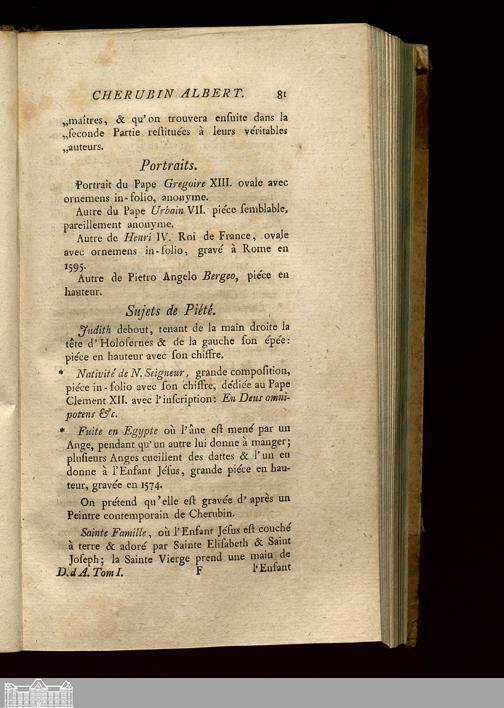 CHERUBIN ALBERT. 81
„maîtres, & qu'on trouvera enſuite dans la
„ſeconde Partie reſtituées à leurs véritables
„auteurs.
Portraits.
Portrait du Pape Gregoire XIII. ovale avec
ornemens in-folio, anonyme.
Autre du Pape Urbain VII. piéce ſemblable,
pareillement anonyme.
Autre de Henri IV. Roi de France, ovale
avec ornemens in-folio, gravé à Rome en
1595.
Autre de Pietro Angelo Bergeo, piéce en
hauteur.
Sujets de Piété.
Judith debout, tenant de la main droite la
tête d'Holofernes & de la gauche ſon épée:
piéce en hauteur avec ſon chiffre.
* Nativité de N. Seigneur, grande compoſition,
piéce in-folio avec ſon chiffre, dédiée au Pape
Clement XII. avec l'inſcription: En Deus omni-
potens &c.
* Fuite en Egypte où l'âne eſt mené par un
Ange, pendant qu'un autre lui donne à manger;
pluſieurs Anges cueillent des dattes & l'un en
donne à l'Enfant Jéſus, grande piéce en hau-
teur, gravée en 1574.
On prétend qu'elle eſt gravée d'après un
Peintre contemporain de Cherubin.
Sainte Famille, où l'Enfant Jéſus eſt couché
à terre & adoré par Sainte Eliſabeth & Saint
Joſeph; la Sainte Vierge prend une main de
D. d A. Tom I. F l'Enfant